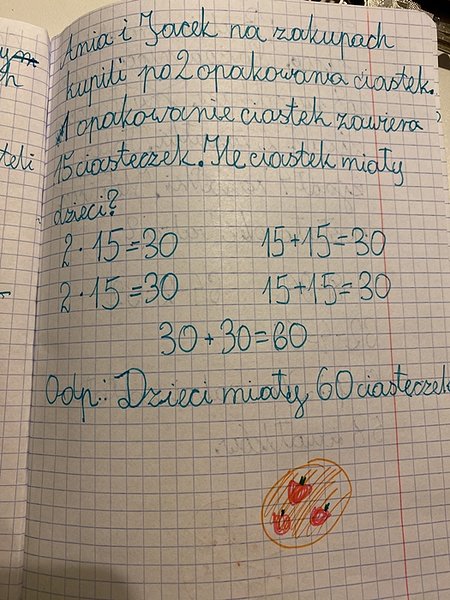 Ania i Jacek na zakupach
kupili po 2 opakowania ciastek.
1 opakowanie ciastek zawiera
15 ciasteczek. Ile ciastek miały
dzieci?
2 · 15 = 30 15 + 15 = 30
2 · 15 = 30 15 + 15 = 30
30 + 30 = 60
Odp.: Dzieci miały 60 ciasteczek